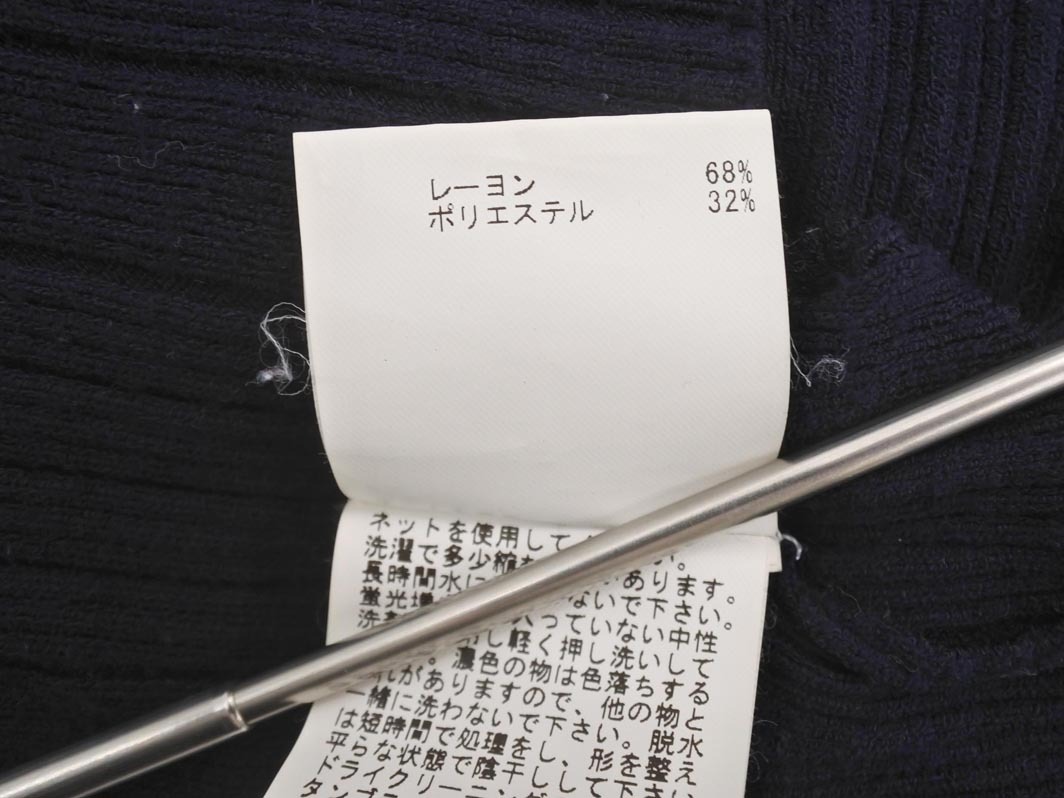 レーヨン 68%
ポリエステル 32%
ネットを使用して い。
洗濯で多少縮 あります。
長時間水に ないで下さい。
蛍光増 入っていない中性
洗 し軽く押し洗いして
。濃色の物は色落ちする
れがありますので、他の物と
一緒に洗わないで下さい。脱水
は短時間で処理をし、形を整え
平らな状態で陰干しして下さい
ドライクリーニン
タンブラ